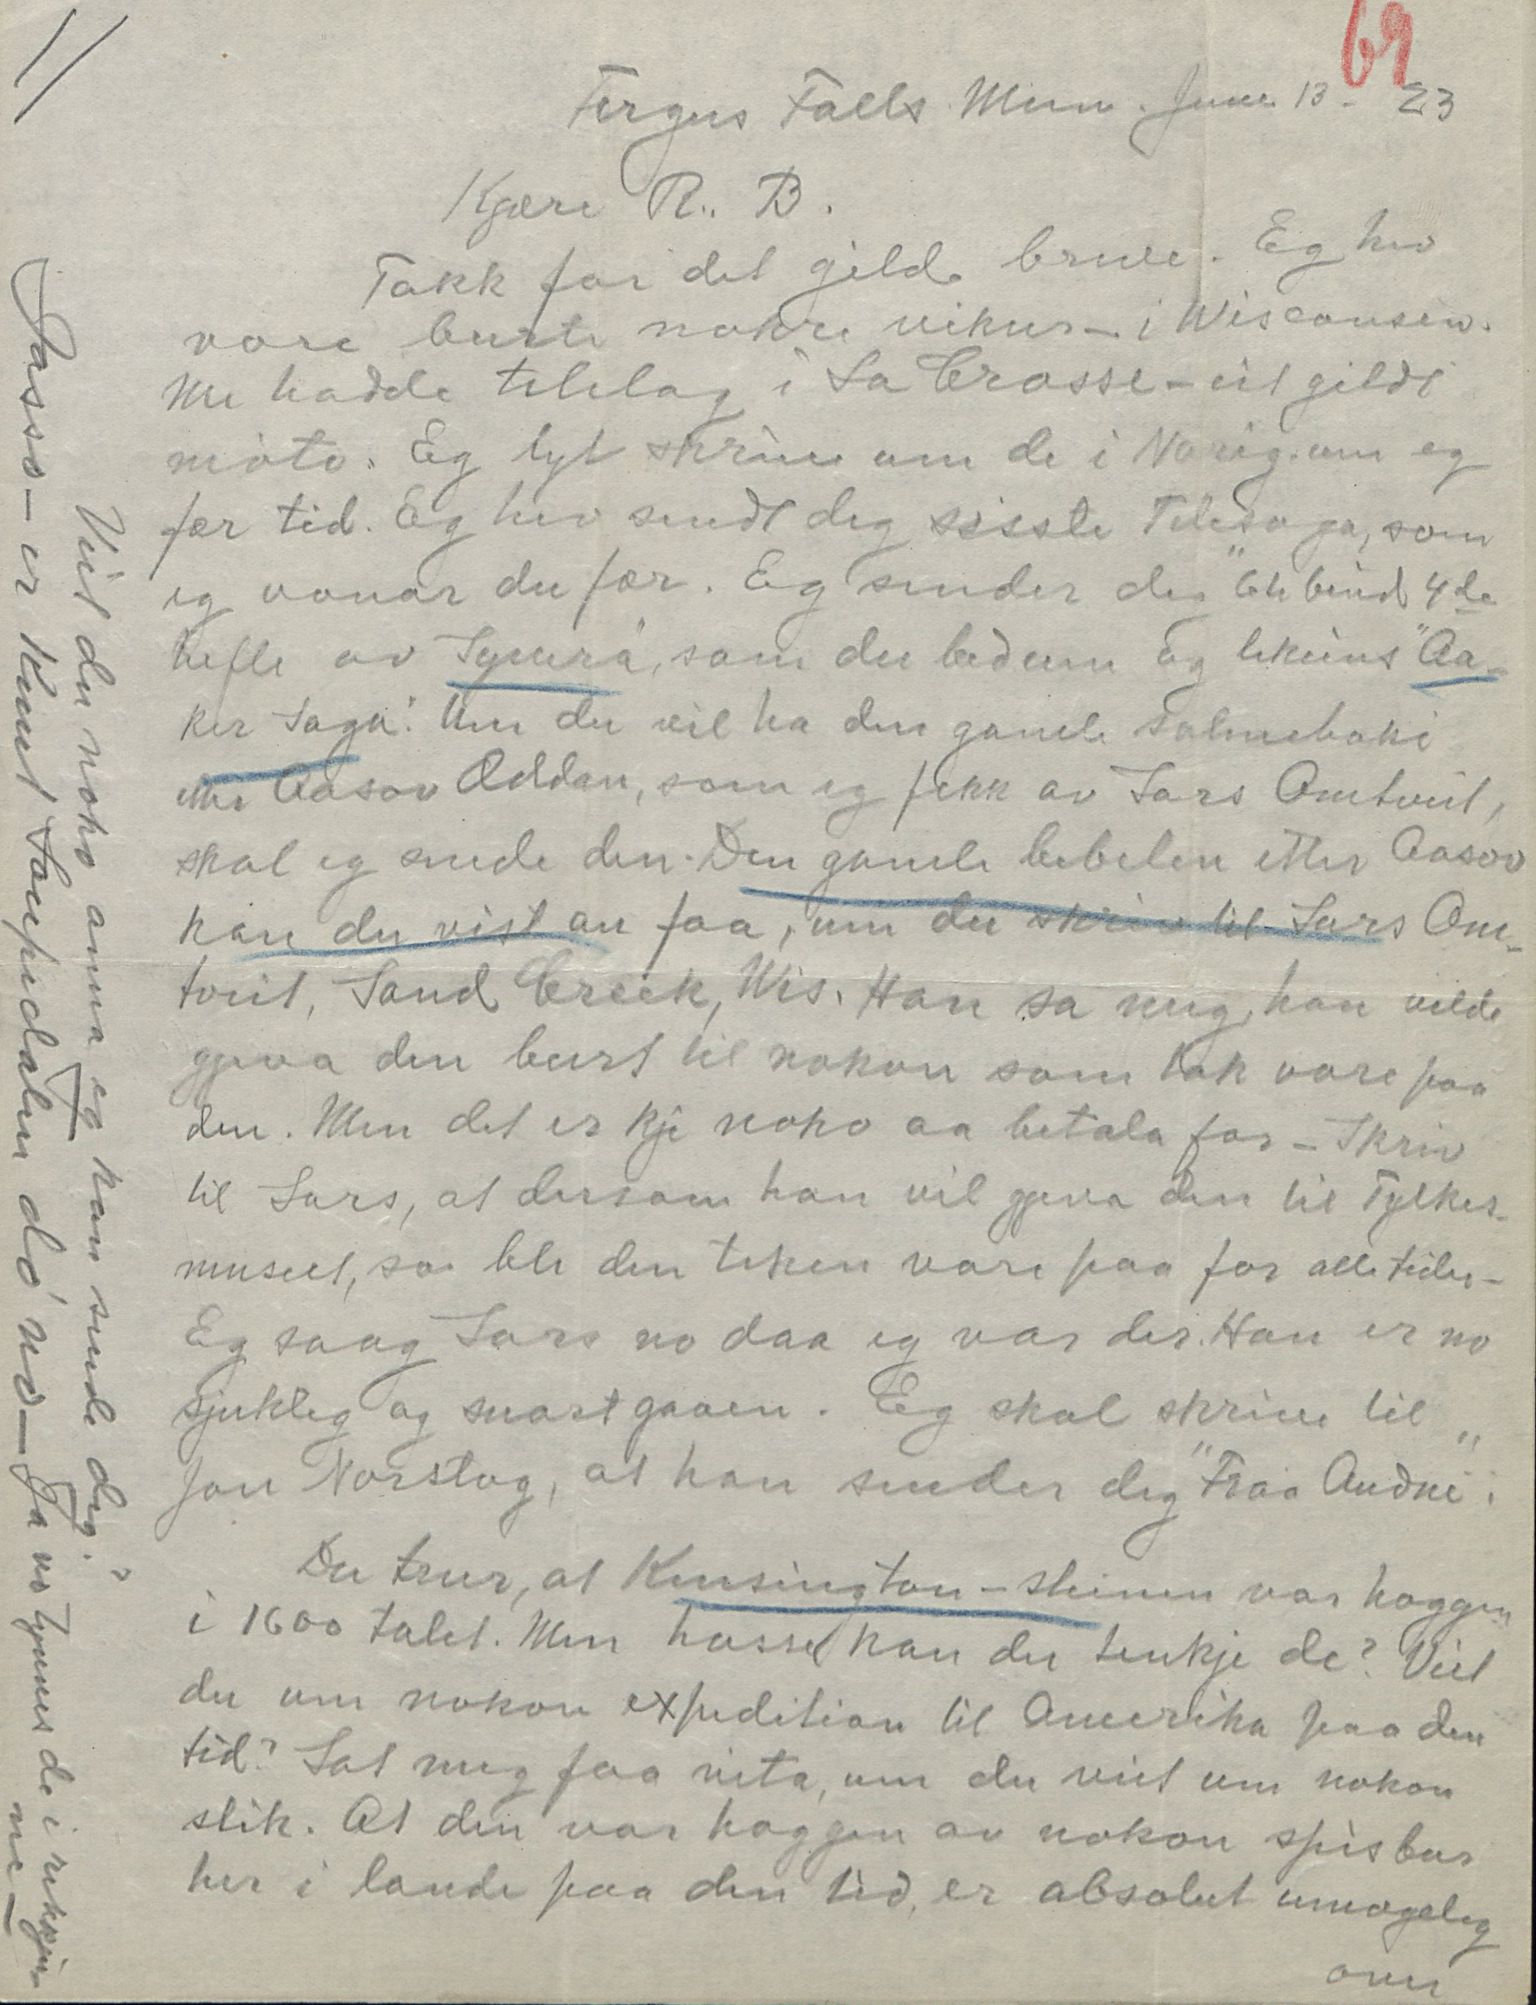 1/
69
Fergus Falls Minn. June 13 - 23
Kjære R. B.
Takk for det gilde breve. Eg hev
vore burte nokre vikur - i Wisconsin.
Me hadde telelag i La Crosse - eit gildt
møte. Eg lyt skrive um de i Norig. um eg
fær tid. Eg hev sendt deg sisste Telesoga, som
eg vonar du fær. Eg sender deg 6te bind 4de
hefte av "Symra", som du bed um og likeins "Aa-
ker Saga". Um du vil ha den gamle salmeboki
etter Aasov Oddan, som eg fekk av Lars Omtveit,
skal eg sende den. Den gamle bibelen etter Aasov
kan du vist au faa, um du skriv til Lars Om-
tveit, Sand Creek, Wis. Han sa meg, han vilde
gjeva den burt til nokon som tok vare paa
den. Men det er kje noko aa betala for - Skriv
til Lars, at dersom han vil gjeva den til Fylkes-
museet, so ble den teken vare paa for alle tider -
Eg saag Lars no daa eg var der. Han er no
sjukleg og snart gaaen. Eg skal skrive til
Jon Norstog, at han sender deg "Fraa Audne".
Du trur, at Kensington-steinen var hoggen
i 1600 talet. Men hosse kan du tenkje de? Veit
du um nokon expedition til Amerika paa den
tid? Lat meg faa vita, um du veit um nokon
slik. At den var hoggen av nokon spisbur
her i lande paa den tid, er absolut umogeleg
over
Veit du noko anna eg kan sende deg?
Jasso - er Knut Loupedalen dø no - Ja no tynnes de i rekkjun
ne -